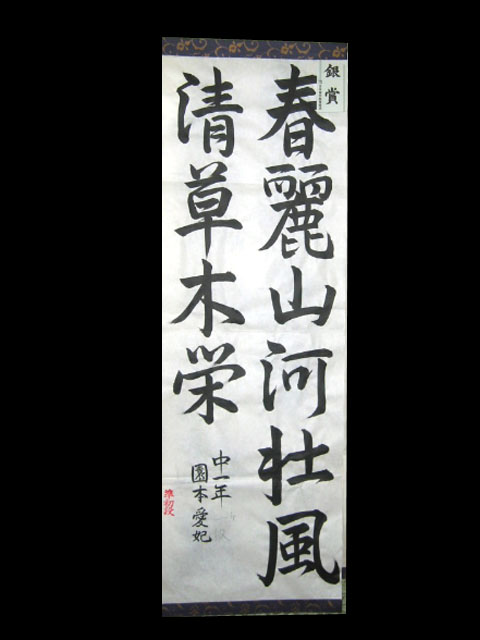 銀賞
春麗山河壮風
清草木栄
中一年
園本愛妃
準初段